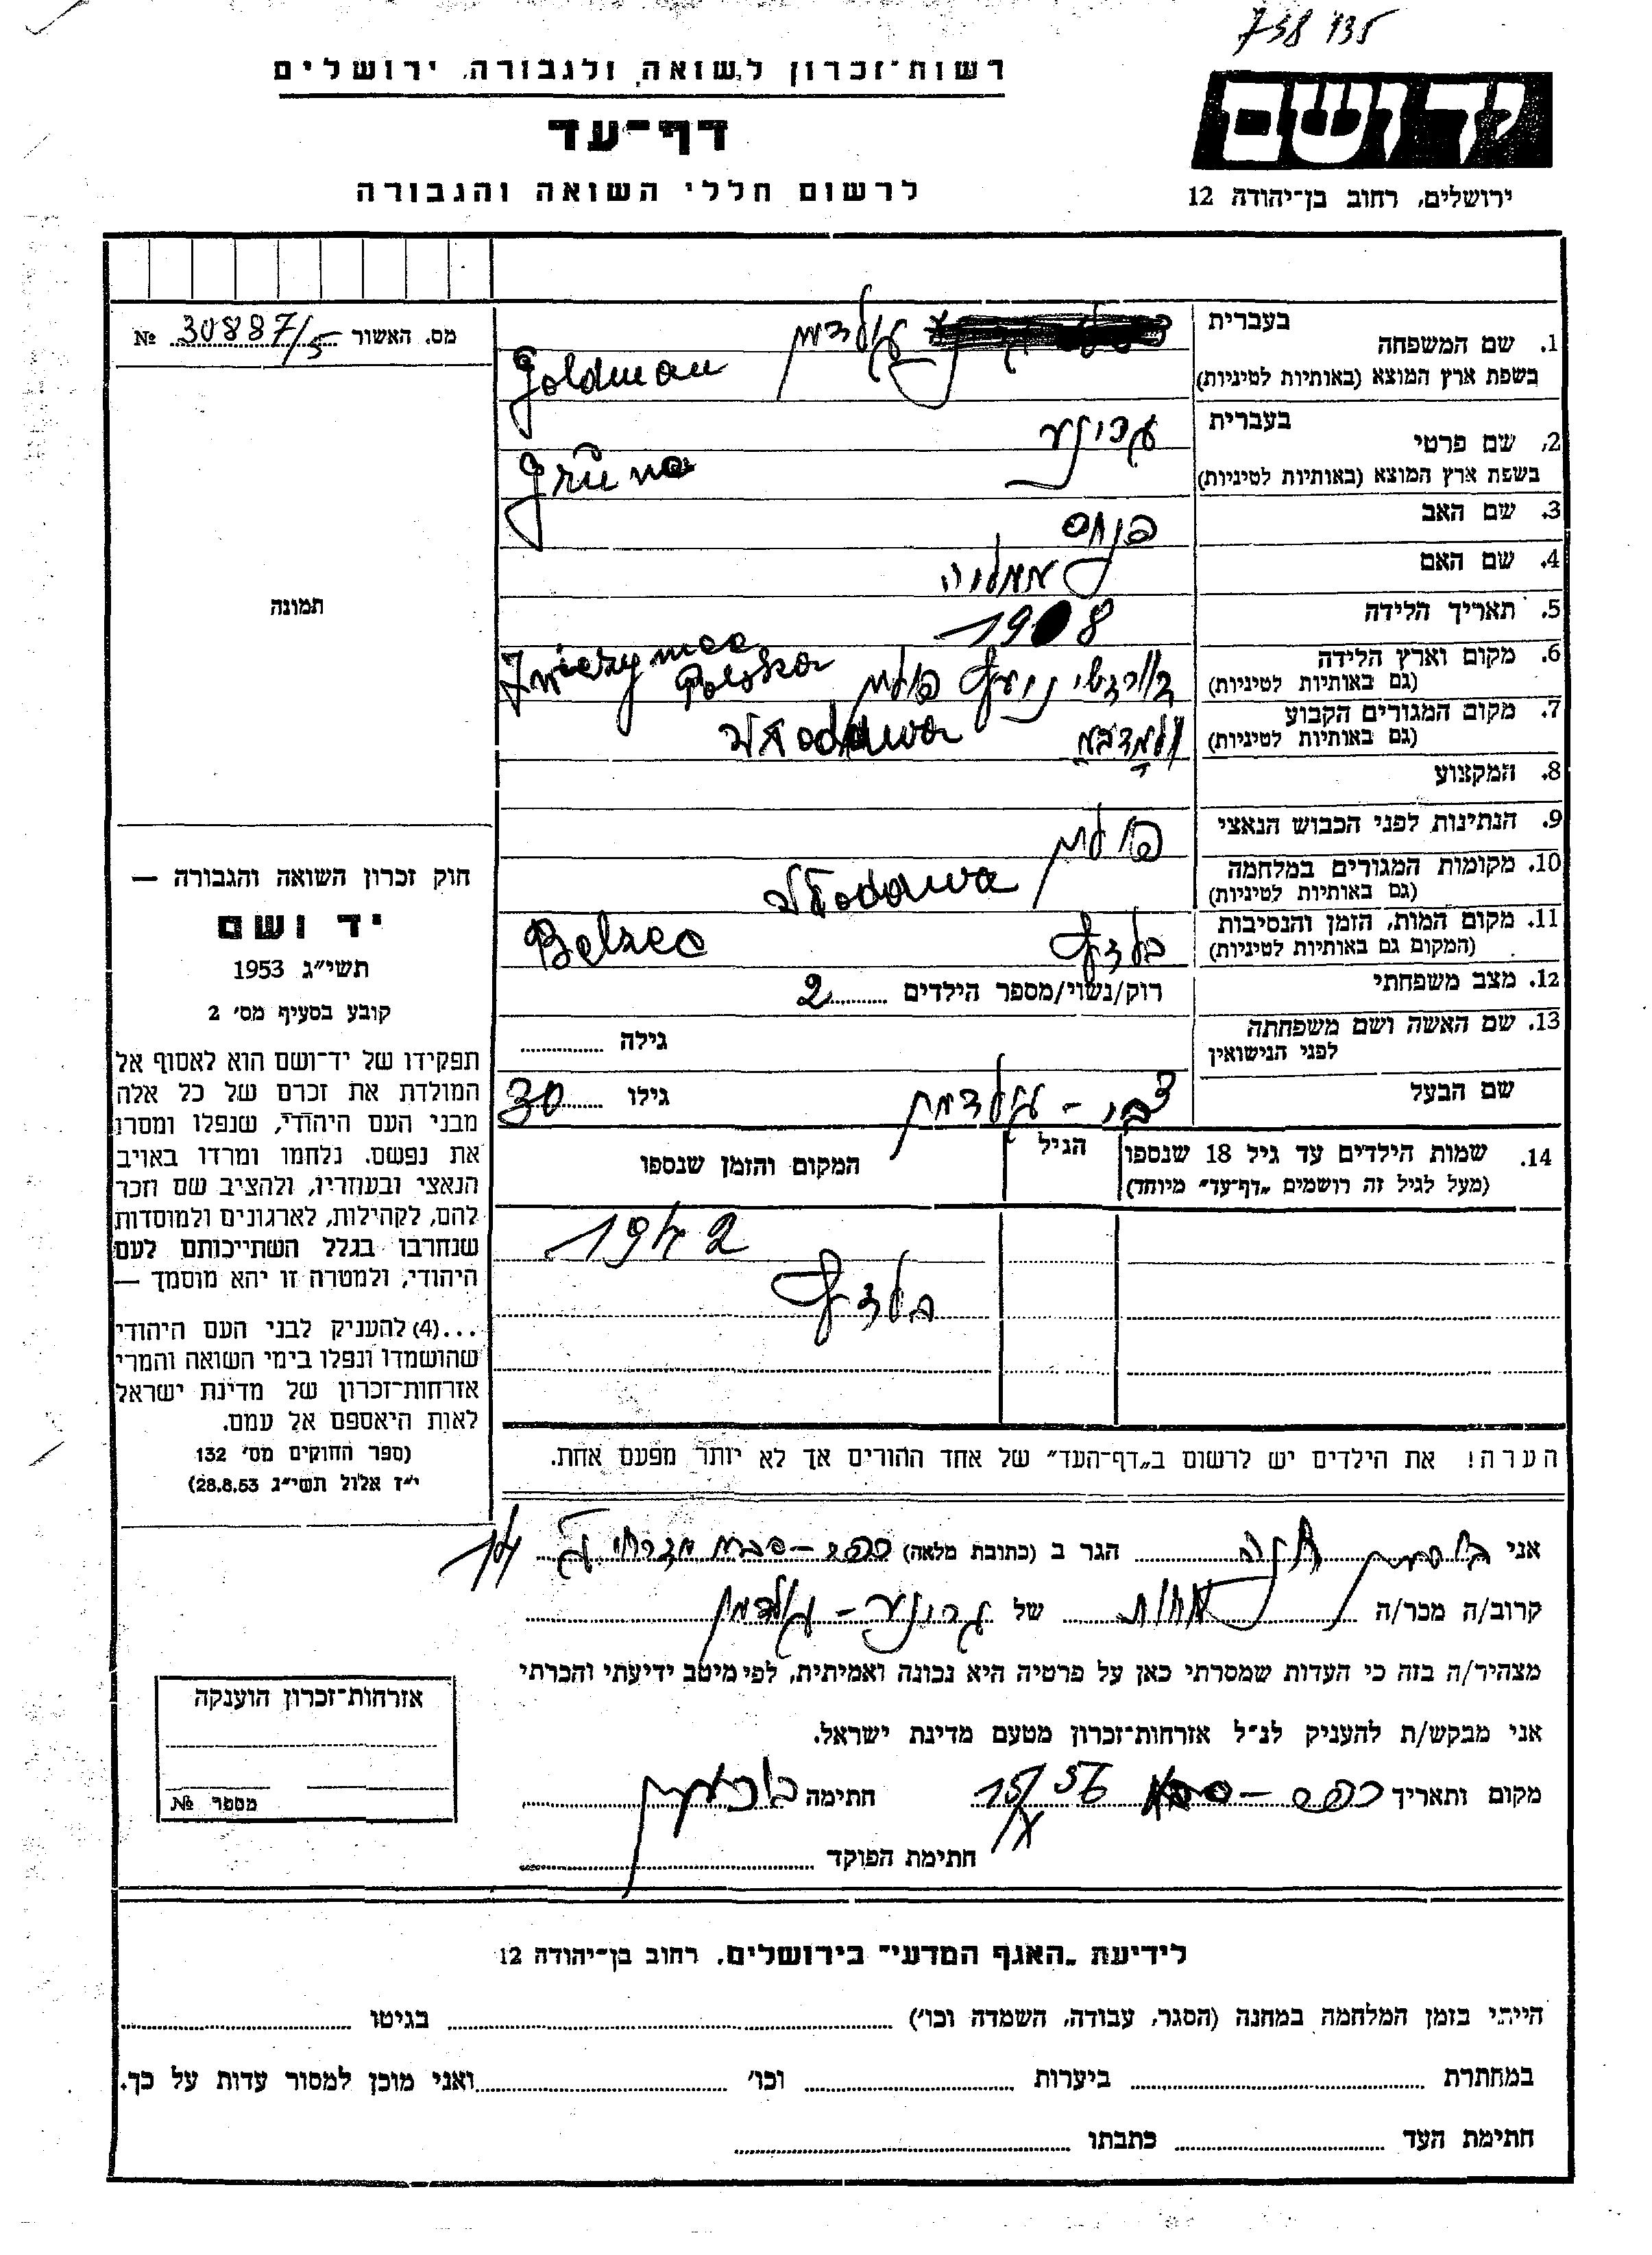 738 135
רשות־זכרון לשואה ולגבורה, ירושלים
דף־עד
לרשום חללי השואה והגבורה
יד ושם
ירושלים, רחוב בן־יהודה 12
מס. האשור 30887/5 №
תמונה
1. שם המשפחה
בעברית גולדמן
בשפת ארץ המוצא (באותיות לטיניות) Goldman
2. שם פרטי
בעברית גרינע
בשפת ארץ המוצא (באותיות לטיניות) Grüna
3. שם האב פנחס
4. שם האם אמליה
5. תאריך הלידה 1908
6. מקום וארץ הלידה פולין Polska
(גם באותיות לטיניות)
7. מקום המגורים הקבוע Włodawa
(גם באותיות לטיניות)
8. המקצוע
9. הנתינות לפני הכבוש הנאצי פולין
10. מקומות המגורים במלחמה Włodawa
(גם באותיות לטיניות)
11. מקום המות, הזמן והנסיבות בלזץ Belzec
(המקום גם באותיות לטיניות)
12. מצב משפחתי רוק/נשוי/מספר הילדים 2
13. שם האשה ושם משפחתה גילה
לפני הנישואין
שם הבעל צבי - גולדמן גילו 30
14. שמות הילדים עד גיל 18 שנספו הגיל המקום והזמן שנספו
(מעל לגיל זה רושמים „דף־עד״ מיוחד)
1942
בלזץ
חוק זכרון השואה והגבורה —
יד ושם
תשי״ג 1953
קובע בסעיף מס׳ 2
תפקידו של יד־ושם הוא לאסוף אל
המולדת את זכרם של כל אלה
מבני העם היהודי, שנפלו ומסרו
את נפשם, נלחמו ומרדו באויב
הנאצי ובעוזריו, ולהציב שם וזכר
להם, לקהילות, לארגונים ולמוסדות
שנחרבו בגלל השתייכותם לעם
היהודי, ולמטרה זו יהא מוסמך —
...(4) להעניק לבני העם היהודי
שהושמדו ונפלו בימי השואה והמרי
אזרחות־זכרון של מדינת ישראל
לאות היאספם אל עמם.
(ספר החוקים מס׳ 132
י״ז אלול תשי״ג 28.8.53)
הערה! את הילדים יש לרשום ב„דף־העד״ של אחד ההורים אך לא יותר מפעם אחת.
אני חנה הגר ב (כתובת מלאה) כפר-סבא
קרוב/ה מכר/ה אחות של גרינע - גולדמן
מצהיר/ה בזה כי העדות שמסרתי כאן על פרטיה היא נכונה ואמיתית, לפי מיטב ידיעתי והכרתי
אני מבקש/ת להעניק לנ״ל אזרחות־זכרון מטעם מדינת ישראל.
מקום ותאריך כפר-סבא 15/X 56 חתימה
חתימת הפוקד
אזרחות־זכרון הוענקה
מספר №
לידיעת „האגף המדעי״ בירושלים, רחוב בן־יהודה 12
הייתי בזמן המלחמה במחנה (הסגר, עבודה, השמדה וכו׳) בגיטו
במחתרת ביערות וכו׳ ואני מוכן למסור עדות על כך.
חתימת העד כתבתו